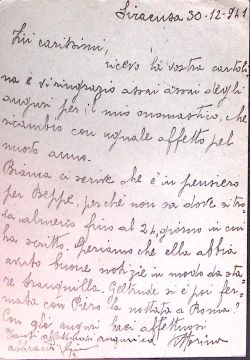 Siracusa 30-12-941
Zii carissimi,
ricevo la vostra cartoli
na e vi ringrazio assai assai degli
auguri per il mio onomastico, che
ricambio con uguale affetto pel
nuovo anno.
Bianca ci scrive che è in pensiero
per Beppe, perché non sa dove si tro
va, almeno fino al 24, giorno in cui
ha scritto. Speriamo che ella abbia
avuto buone notizie in modo da sta
re tranquilla. Geltrude si è poi fer
mata con Piero la nottata a Roma?
Con gli auguri baci affettuosi
Tanti affettuosi auguri ed
abbracci